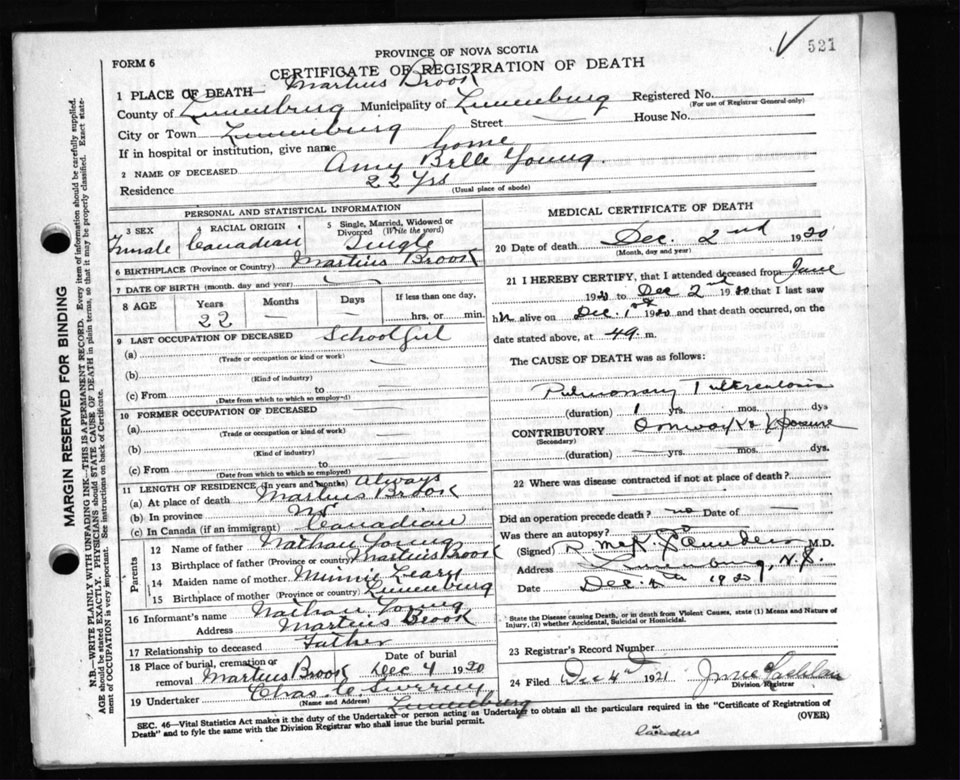 521
PROVINCE OF NOVA SCOTIA
FORM 6
CERTIFICATE OF REGISTRATION OF DEATH
1 PLACE OF DEATH— Martins Brook
County of Lunenburg Municipality of Lunenburg Registered No.
(For use of Registrar General only)
City or Town Lunenburg Street — House No.
If in hospital or institution, give name home
2 NAME OF DECEASED Amy Belle Young.
Residence 22 yrs
(Usual place of abode)
PERSONAL AND STATISTICAL INFORMATION
3 SEX Female
4 RACIAL ORIGIN Canadian
5 Single, Married, Widowed or Divorced (Write the word) Single
6 BIRTHPLACE (Province or Country) Martins Brook
7 DATE OF BIRTH (month, day and year)
8 AGE Years Months Days If less than one day,
22 — — hrs. or min.
9 LAST OCCUPATION OF DECEASED School Girl
(a) (Trade or occupation or kind or work)
(b) (Kind of industry)
(c) From to
(Date from which to which so employed)
10 FORMER OCCUPATION OF DECEASED —
(a) (Trade or occupation or kind of work)
(b) (Kind of industry)
(c) From to
(Date from which to which so employed)
11 LENGTH OF RESIDENCE (In years and months) Always
(a) At place of death Martins Brook
(b) In province
(c) In Canada (if an immigrant) Canadian
Parents
12 Name of father Nathan Young
13 Birthplace of father (Province or country) Martins Brook
14 Maiden name of mother Minnie Leary
15 Birthplace of mother (Province or country) Lunenburg
16 Informant's name Nathan Young
Address Martins Brook
17 Relationship to deceased Father
18 Place of burial, cremation or removal Martins Brook Date of burial Dec 4 1920
19 Undertaker Chas. Lunenburg
(Name and Address)
MEDICAL CERTIFICATE OF DEATH
20 Date of death Dec. 2nd 1920
(Month, day and year)
21 I HEREBY CERTIFY, that I attended deceased from June
1920 to Dec 2nd 1920 that I last saw
h alive on Dec. 1st 1920 and that death occurred, on the
date stated above, at m.
The CAUSE OF DEATH was as follows:
Pulmonary Tuberculosis
(duration) 1 yrs. mos. dys
CONTRIBUTORY Overwork & Exposure
(Secondary)
(duration) — yrs. — mos. — dys.
22 Where was disease contracted if not at place of death?
Did an operation precede death? no Date of —
Was there an autopsy? no
(Signed) Saunders M.D.
Address Lunenburg, N.S.
Date Dec. 1920
State the Disease causing Death, or in death from Violent Causes, state (1) Means and Nature of
Injury, (2) whether Accidental, Suicidal or Homicidal.
23 Registrar's Record Number
24 Filed Dec 4th 1921
Division Registrar
SEC. 46—Vital Statistics Act makes it the duty of the Undertaker or person acting as Undertaker to obtain all the particulars required in the "Certificate of Registration of
Death" and to fyle the same with the Division Registrar who shall issue the burial permit.
(OVER)
MARGIN RESERVED FOR BINDING
N.B.—WRITE PLAINLY WITH UNFADING INK—THIS IS A PERMANENT RECORD. Every item of information should be carefully supplied.
AGE should be stated EXACTLY. PHYSICIANS should STATE CAUSE OF DEATH in plain terms, so that it may be properly classified. Exact state-
ment of OCCUPATION is very important. See instructions on back of Certificate.